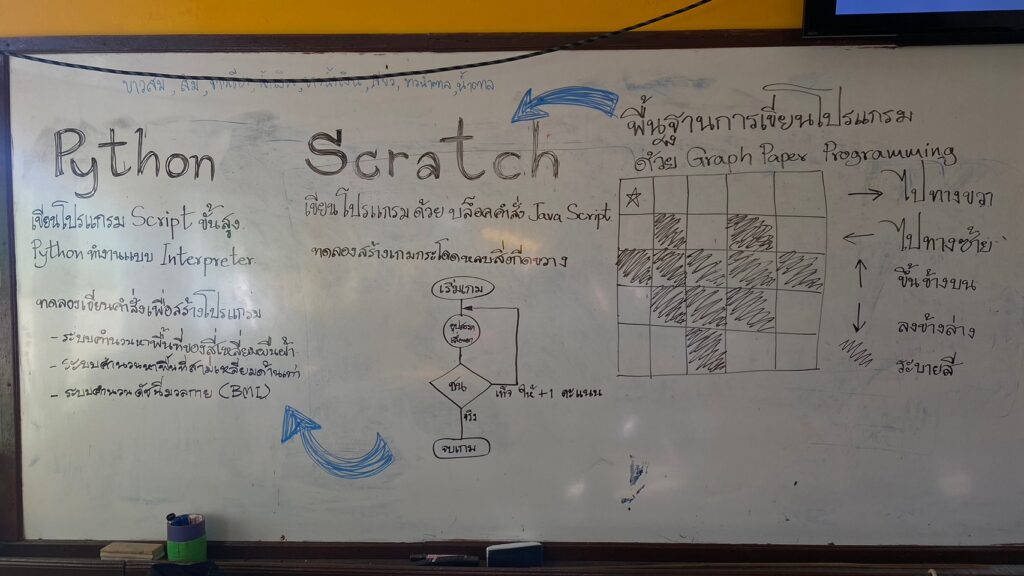 ขาวส้ม, ส้ม, ขาวเขียว, น้ำเงิน, ขาวน้ำเงิน, เขียว, ขาวน้ำตาล, น้ำตาล
Python
เขียนโปรแกรม Script ขั้นสูง
Python ทำงานแบบ Interpreter
ทดลองเขียนคำสั่งเพื่อสร้างโปรแกรม
- ระบบคำนวนหาพื้นที่ของสี่เหลี่ยมผืนผ้า
- ระบบคำนวนหาพื้นที่สามเหลี่ยมด้านเท่า
- ระบบคำนวนดัชนีมวลกาย (BMI)
Scratch
เขียนโปรแกรมด้วย บล็อคคำสั่ง Java Script
ทดลองสร้างเกมกระโดดหลบสิ่งกีดขวาง
เริ่มเกม
ชน
เท็จ ให้ +1 คะแนน
จริง
จบเกม
พื้นฐานการเขียนโปรแกรม
ด้วย Graph Paper Programming
→ ไปทางขวา
← ไปทางซ้าย
↑ ขึ้นข้างบน
↓ ลงข้างล่าง
ระบายสี